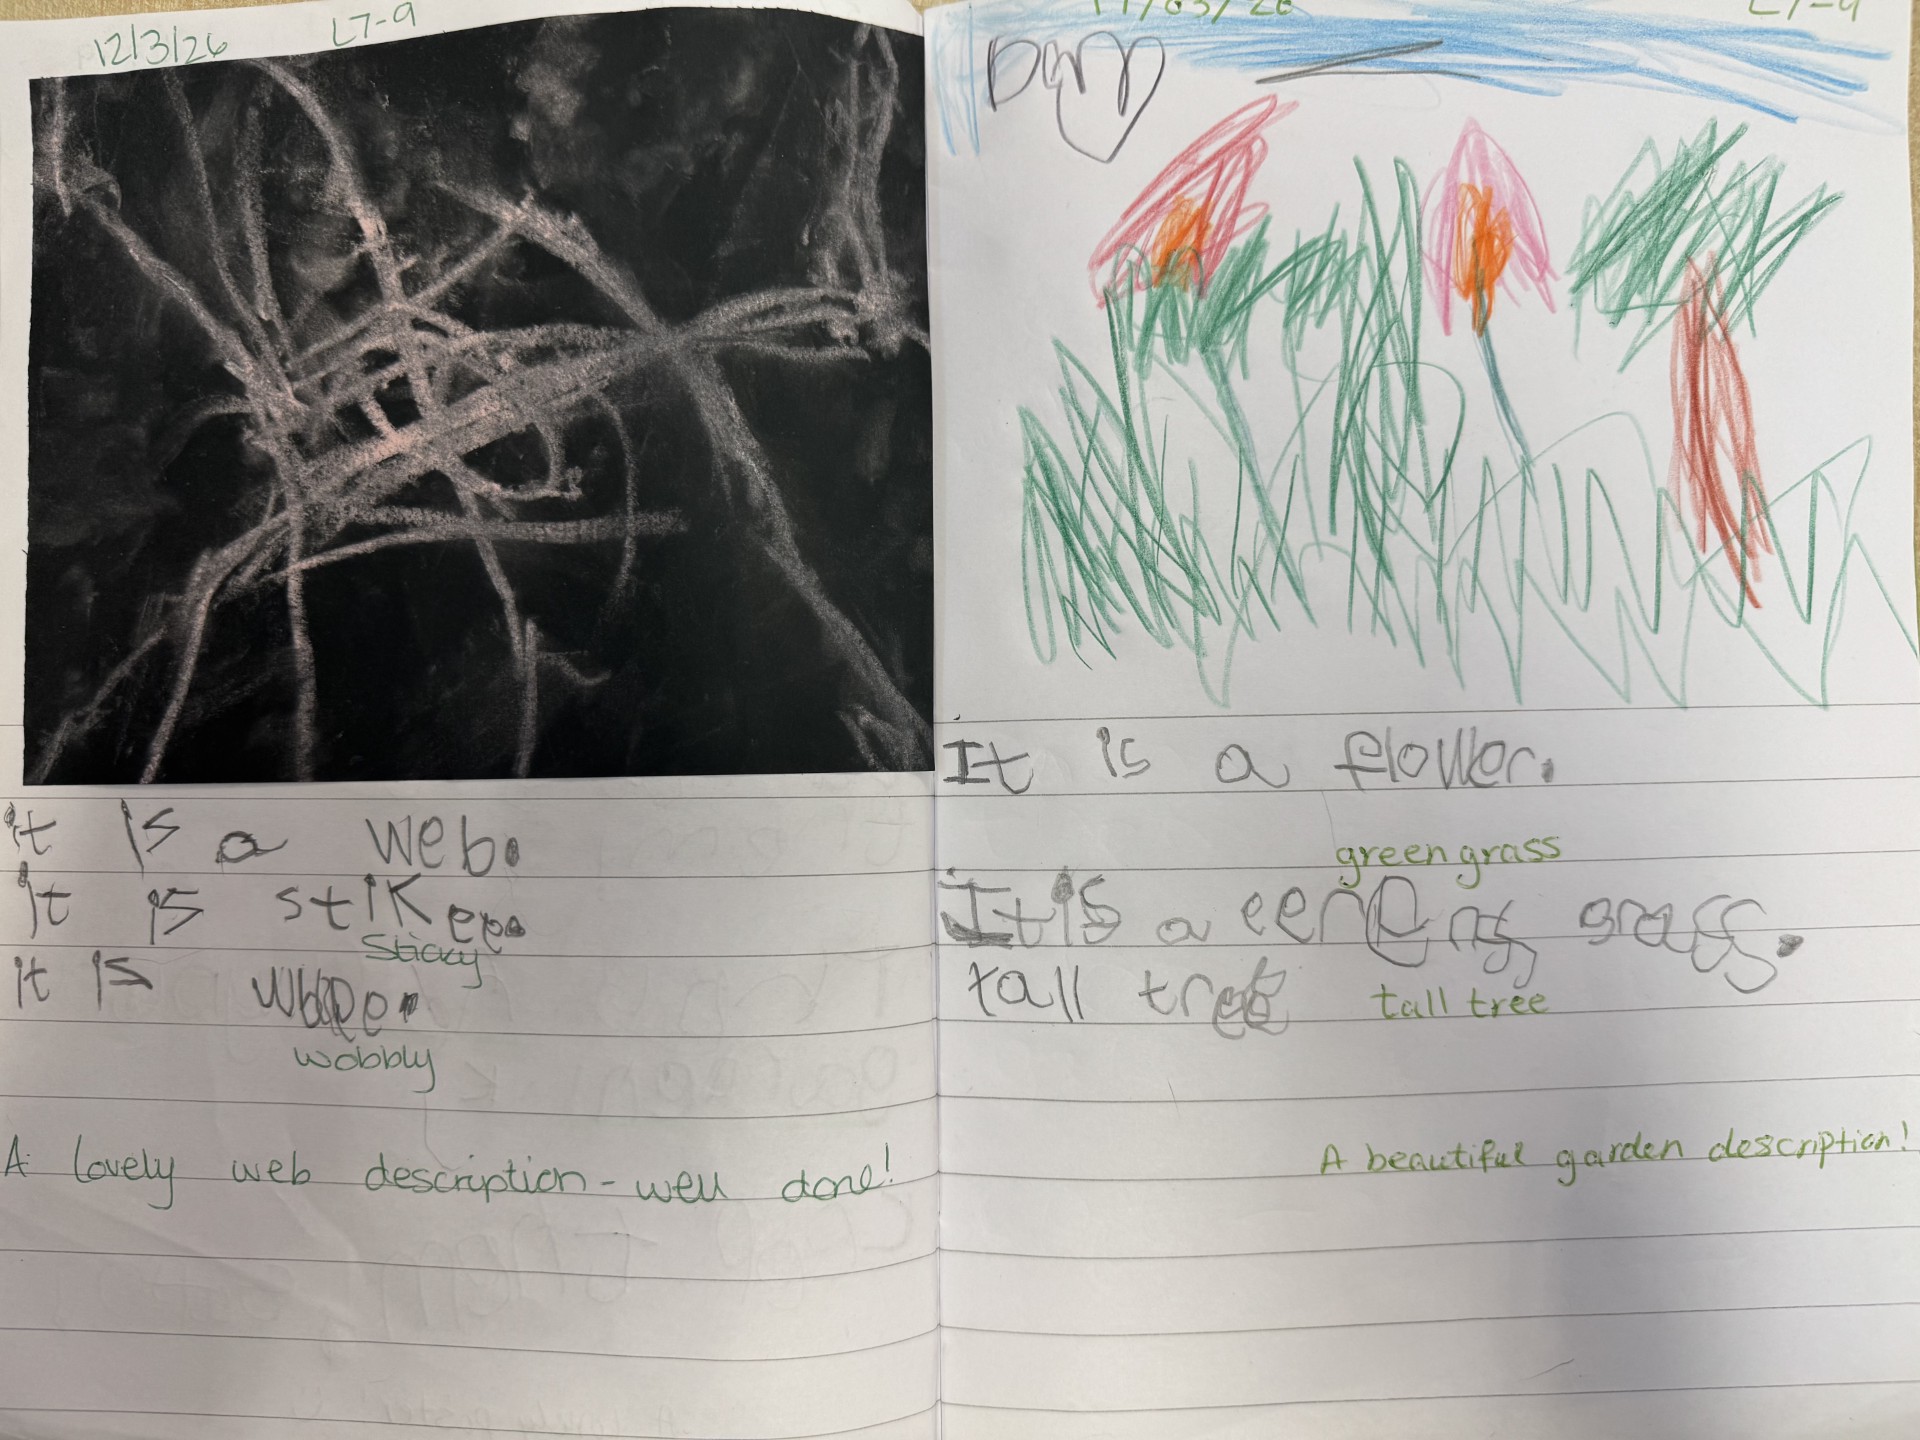 12/3/26 L7-9
it is a web.
it is stikee.
sticky
it is
wobbly
A lovely web description - well done!
L7-9
It is a flower.
green grass
It is a grass.
tall tree tall tree
A beautiful garden description!